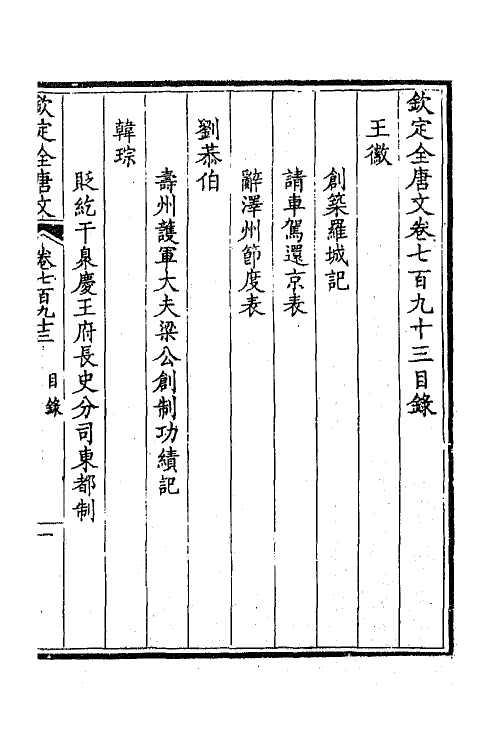 欽定全唐文卷七百九十三目錄
王徽
創築羅城記
請車駕還京表
辭澤州節度表
劉恭伯
壽州護軍大夫梁公創制功績記
韓琮
貶紇干臮慶王府長史分司東都制
欽定全唐文 卷七百九十三 目錄 一